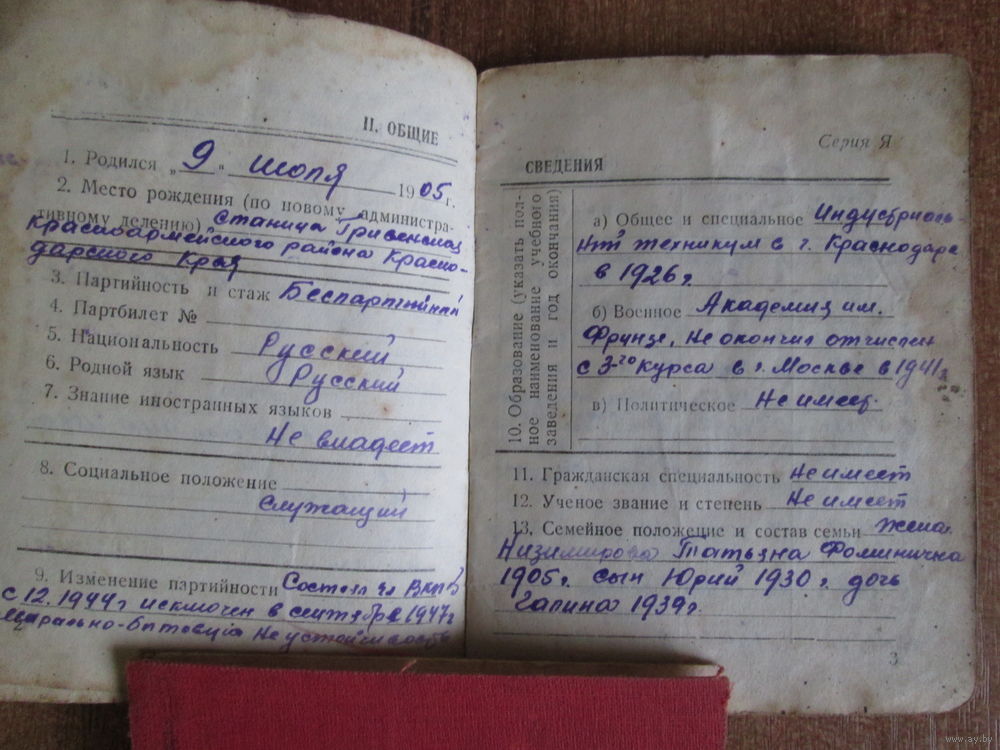 II. ОБЩИЕ
1. Родился „ 9 " июля 1905 г.
2. Место рождения (по новому администра-
тивному делению) Станица Гривенская
Красноармейского района Красно-
дарского Края
3. Партийность и стаж Беспартийный
4. Партбилет №
5. Национальность Русский
6. Родной язык Русский
7. Знание иностранных языков
Не владеет
8. Социальное положение
Служащий
9. Изменение партийности Состоял чл ВКПб
с 12.1944 г исключен в сентябре 1947 г
морально-бытовая Неустойчивость
2
Серия Я
СВЕДЕНИЯ
10. Образование (указать пол-
ное наименование учебного
заведения и год окончания)
а) Общее и специальное Индустриаль-
ный техникум в г. Краснодаре
в 1926 г.
б) Военное Академия им.
Фрунзе, Не окончил отчислен
с 3-го курса в г. Москве в 1941 г.
в) Политическое Не имеет.
11. Гражданская специальность Не имеет
12. Ученое звание и степень Не имеет
13. Семейное положение и состав семьи Жена
Татьяна Фоминична
1905 г. сын Юрий 1930 г. дочь
Галина 1939 г.
3
www.ay.by